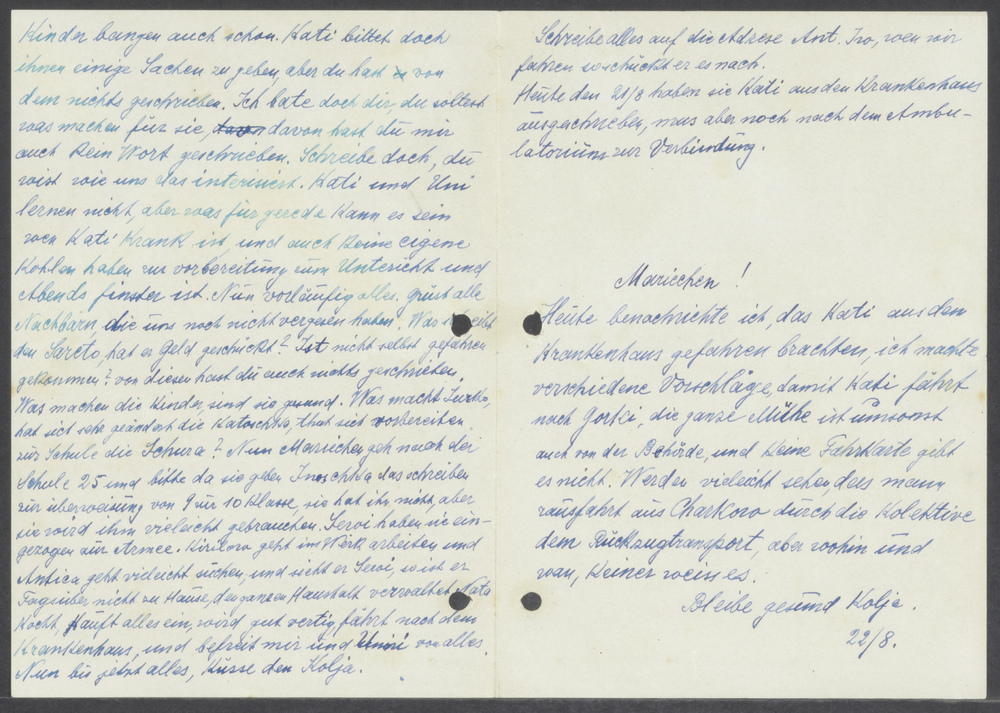 Kinder bangen auch schon. Kati bittet doch
ihnen einige Sachen zu geben, aber du hast von
dem nichts geschrieben. Ich bate doch dir, du soltest
was machen für sie, davon hast du mir
auch kein Wort geschrieben. Schreibe doch, du
wist wie uns das interisirt. Kati und Uni
lernen nicht, aber was für gerede kann es sein
wen Kati krank ist, und auch keine eigene
Kohlen haben zur vorbereitung zum Untericht und
Abends finster ist. Nun vorläufig alles. Grüst alle
Nachbarn, die uns noch nicht vergesen haben. Was schreibt
den Sareto, hat er Geld geschickt? Ist nicht selbst gefahren
gekommen? von diesen hast du auch nichts geschrieben.
Was machen die Kinder, sind sie gesund. Was macht
hat sich sehr geändert die Katoschka, that sich vorbereiten
zur Schule die Schura? Nun Mariechen geh nach der
Schule 25 und bitte da sie geben Inoschka das schreiben
zur überweisung von 9 zur 10 Klasse, sie hat ihn nicht, aber
sie wird ihm vieleicht gebrauchen. Seroi haben sie ein-
gezogen zur Armee. Kirilowa geht ins Werk arbeiten und
Antica geht vieleicht suchen, und sieht er Seroi, so ist er
Tagsüber nicht zu Hause, den ganzen Haushalt verwaltet Nata
kocht, kauft alles ein, wird gut vertig, fährt nach dem
Krankenhaus, und befreit mir und von alles.
Nun bis jetzt alles, Küsse den Kolja.
Schreibe alles auf die Adrese Ant. Iwo, wen wir
fahren so schückt er es nach.
Heute den 21/8 haben sie Kati aus den Krankenhaus
ausgeschrieben, mus aber noch nach dem Ambu-
latoriums zur Verbindung.
Mariechen!
Heute benachrichte ich, das Kati aus dem
Krankenhaus gefahren brachten, ich machte
verschiedene Vorschläge, damit Kati fährt
nach Gorki, die ganze Mühe ist umsonst
auch von der Behörde, und keine Fahrkarte gibt
es nicht. Werden vieleicht sehen, das mann
rausfährt aus Charkow durch die Kolektive
dem Rückzugtransport, aber woohin und
wan, keiner weiss es.
Bleibe gesund Kolja.
22/8.